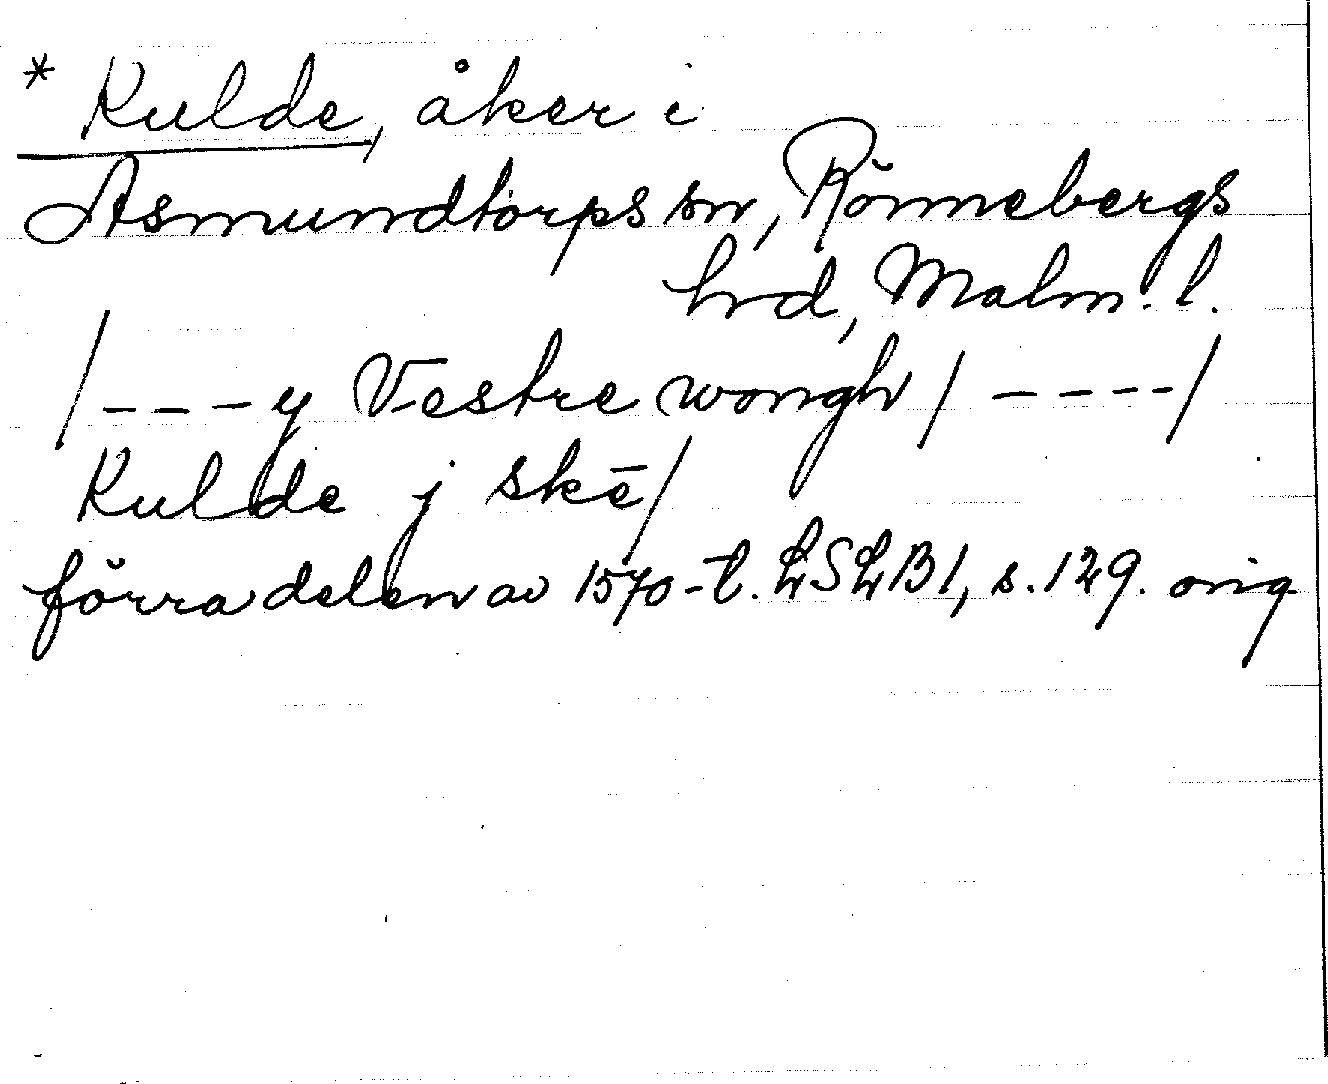 * Kulde, åker i
Asmundtorps sn, Rönnebergs
hrd, Malm. l.
/---y Vestre wongh/----/
Kulde j skē/
förra delen av 1570-t. LSLB1, s. 129. orig